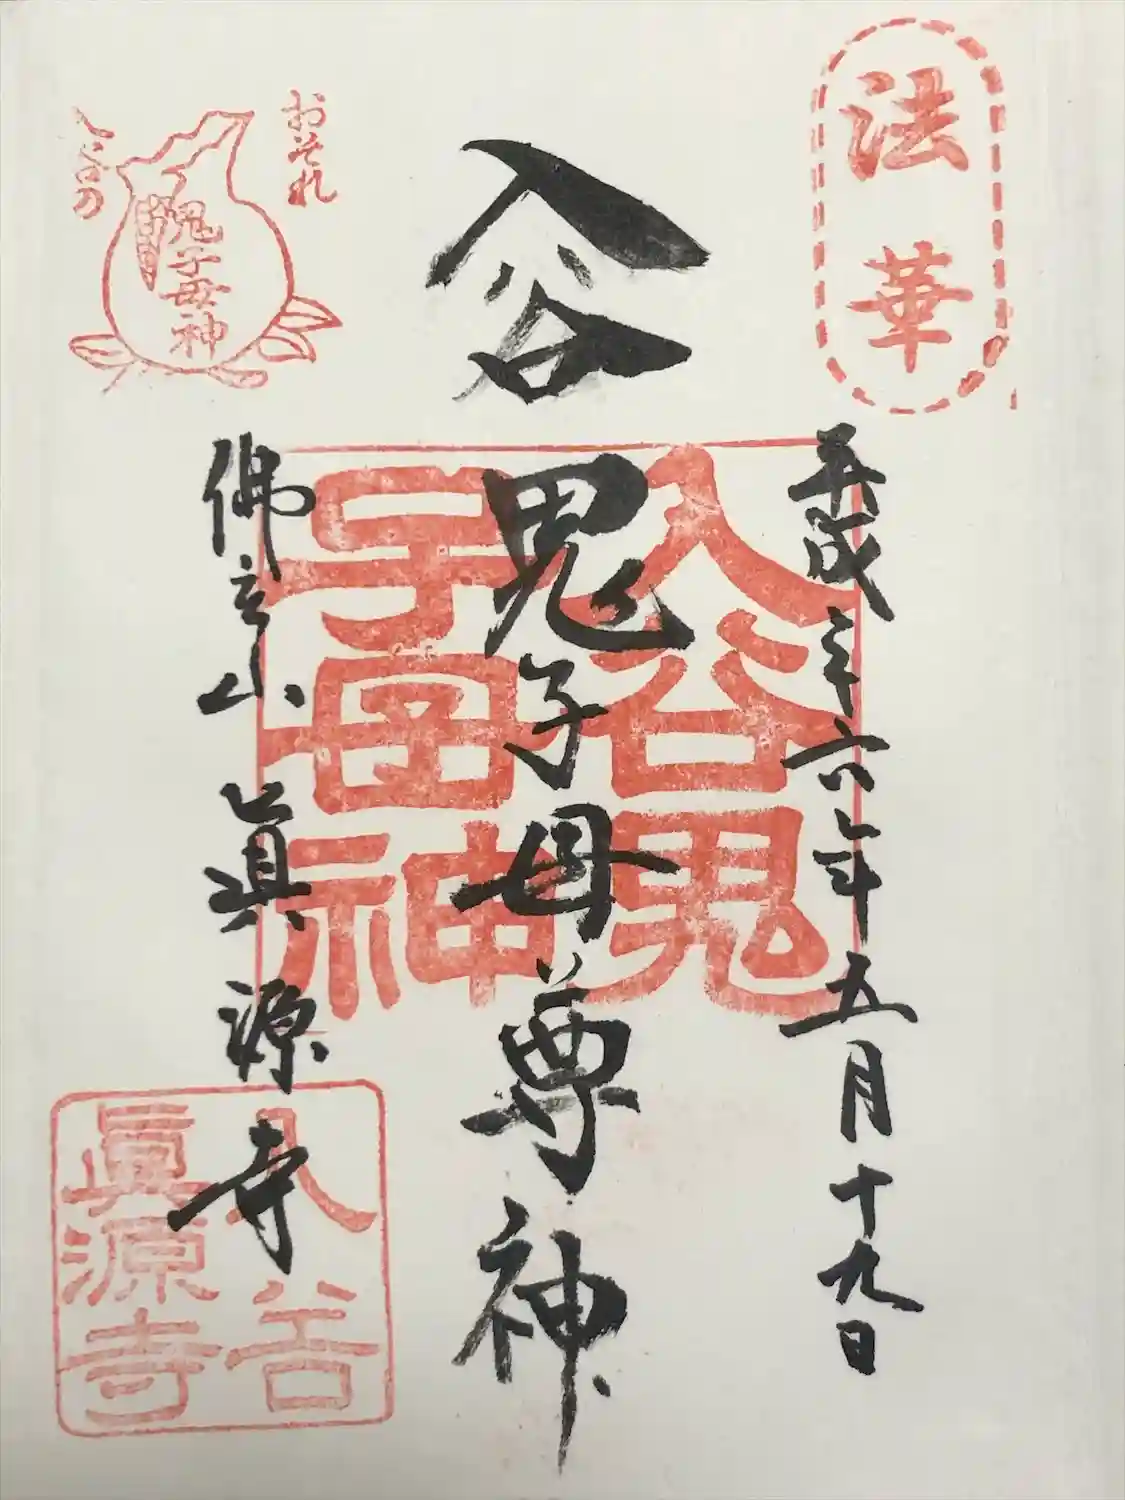 法華
平成三十六年五月十九日
入谷
鬼子母尊神
入谷鬼
子母神
おそれ
入谷の
鬼子母神
佛立山 眞源寺
入谷
眞源寺